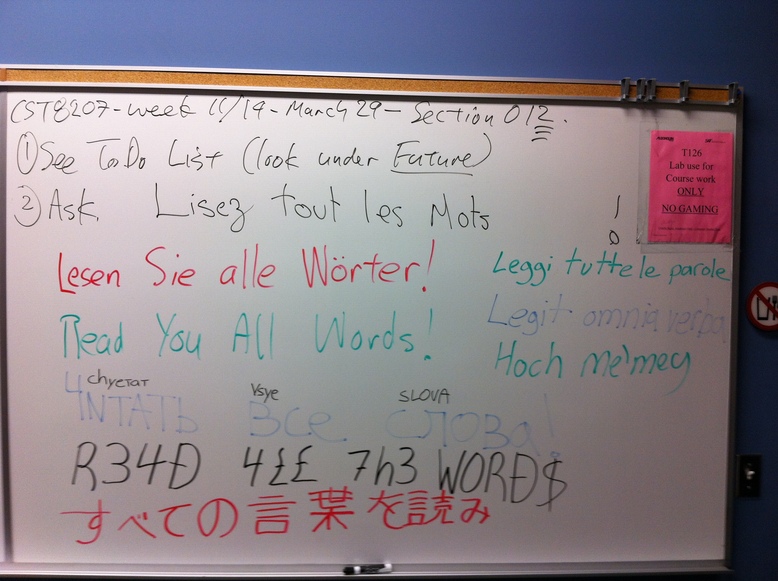 CST8207-week 11/14-March 29- Section 012.
① See ToDo List (look under Future)
② Ask. Lisez tout les Mots!
Lesen Sie alle Wörter!
Read You All Words!
chyetat Vsye SLOVA
ЧNTATЬ Bce слова!
R34Đ 4££ 7h3 WORĐ$
すべての言葉を読み
Leggi tutte le parole
Legit omnia verba
Hoch me'mey
T126
Lab use for
Course work
ONLY
NO GAMING